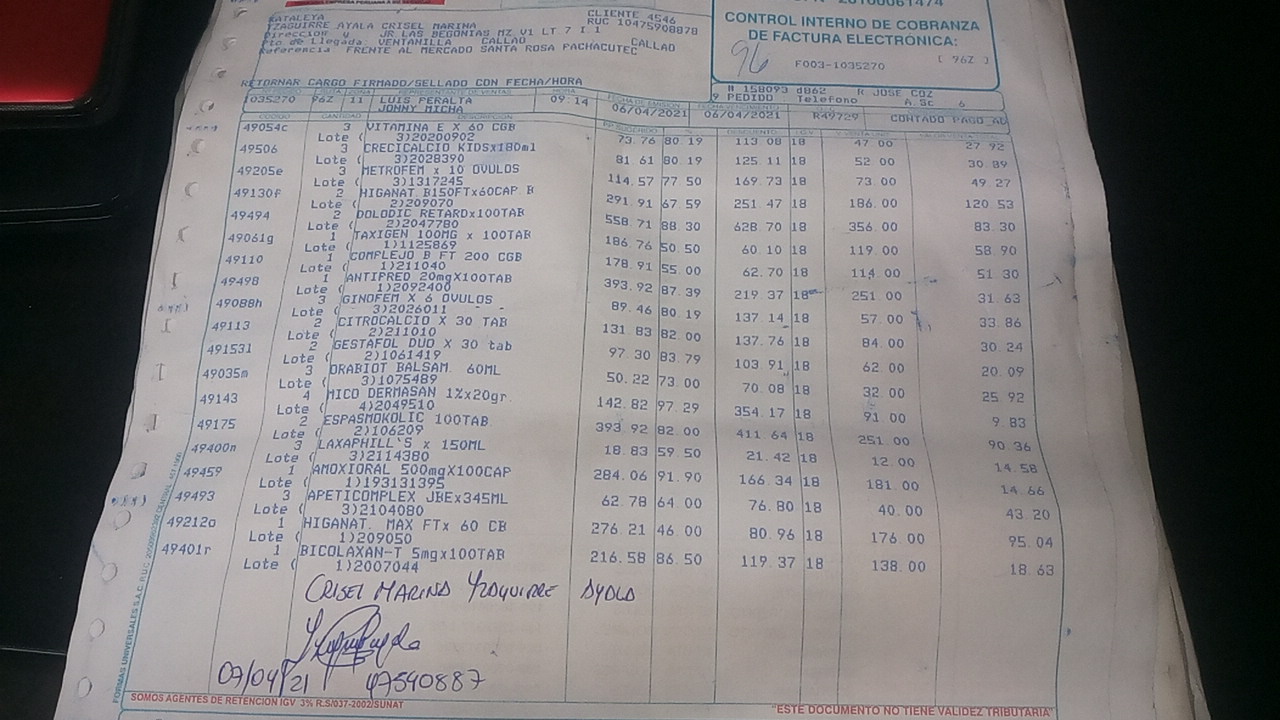 KATALEYA
YZAGUIRRE AYALA CRISEL MARINA
CLIENTE 4546
RUC 10475908878
Direccion y JR LAS BEGONIAS MZ V1 LT 7 I 1
Pto de Llegada VENTANILLA CALLAO CALLAO
Referencia FRENTE AL MERCADO SANTA ROSA PACHACUTEC
20100061474
CONTROL INTERNO DE COBRANZA
DE FACTURA ELECTRÓNICA:
96 F003-1035270 ( 96Z )
RETORNAR CARGO FIRMADO/SELLADO CON FECHA/HORA
# 158093 d062 R JOSE COZ
9 PEDIDO Telefono A.Sc 6
REPRESENTANTE DE VENTAS HORA FECHA DE EMISION
1035270 96Z 11 LUIS PERALTA 09:14 06/04/2021 06/04/2021 R49729 CONTADO PAGO_AD
JONNY MICHA
CODIGO CANTIDAD DESCRIPCION DESCUENTO
49054c 3 VITAMINA E X 60 CGB 73.76 80.19 113.08 18 47.00 27.92
Lote ( 3)20200902
49506 3 CRECICALCIO KIDSx180ml 81.61 80.19 125.11 18 52.00 30.89
Lote ( 3)2028390
49205e 3 METROFEM x 10 OVULOS 114.57 77.50 169.73 18 73.00 49.27
Lote ( 3)1317245
49130f 2 HIGANAT B150FTx60CAP B 291.91 67.59 251.47 18 186.00 120.53
Lote ( 2)209070
49494 2 DOLODIC RETARDx100TAB 558.71 88.30 628.70 18 356.00 83.30
Lote ( 2)2047780
49061g 1 TAXIGEN 100MG x 100TAB 186.76 50.50 60.10 18 119.00 58.90
Lote ( 1)1125869
49110 1 COMPLEJO B FT 200 CGB 178.91 55.00 62.70 18 114.00 51.30
Lote ( 1)211040
49498 1 ANTIPRED 20mgX100TAB 393.92 87.39 219.37 18 251.00 31.63
Lote ( 1)2092400
49088h 3 GINOFEM X 6 OVULOS 89.46 80.19 137.14 18 57.00 33.86
Lote ( 3)2026011
49113 2 CITROCALCIO X 30 TAB 131.83 82.00 137.76 18 84.00 30.24
Lote ( 2)211010
491531 2 GESTAFOL DUO X 30 tab 97.30 83.79 103.91 18 62.00 20.09
Lote ( 2)1061419
49035m 3 ORABIOT BALSAM 60ML 50.22 73.00 70.08 18 32.00 25.92
Lote ( 3)1075489
49143 4 MICO DERMASAN 1%x20gr. 142.82 97.29 354.17 18 91.00 9.83
Lote ( 4)2049510
49175 2 ESPASMOKOLIC 100TAB 393.92 82.00 411.64 18 251.00 90.36
Lote ( 2)106209
49400n 3 LAXAPHILL'S x 150ML 18.83 59.50 21.42 18 12.00 14.58
Lote ( 3)2114380
49459 1 AMOXIORAL 500mgX100CAP 284.06 91.90 166.34 18 181.00 14.66
Lote ( 1)193131395
49493 3 APETICOMPLEX JBEx345ML 62.78 64.00 76.80 18 40.00 43.20
Lote ( 3)2104080
49212o 1 HIGANAT. MAX FTx 60 CB 276.21 46.00 80.96 18 176.00 95.04
Lote ( 1)209050
49401r 1 BICOLAXAN-T 5mgx100TAB 216.58 86.50 119.37 18 138.00 18.63
Lote ( 1)2007044
CRISEL MARINA YZAGUIRRE AYALA
07/04/21 47590887
SOMOS AGENTES DE RETENCION IGV 3% R.S/037-2002/SUNAT
"ESTE DOCUMENTO NO TIENE VALIDEZ TRIBUTARIA"
FORMAS UNIVERSALES S.A.C. R.U.C.